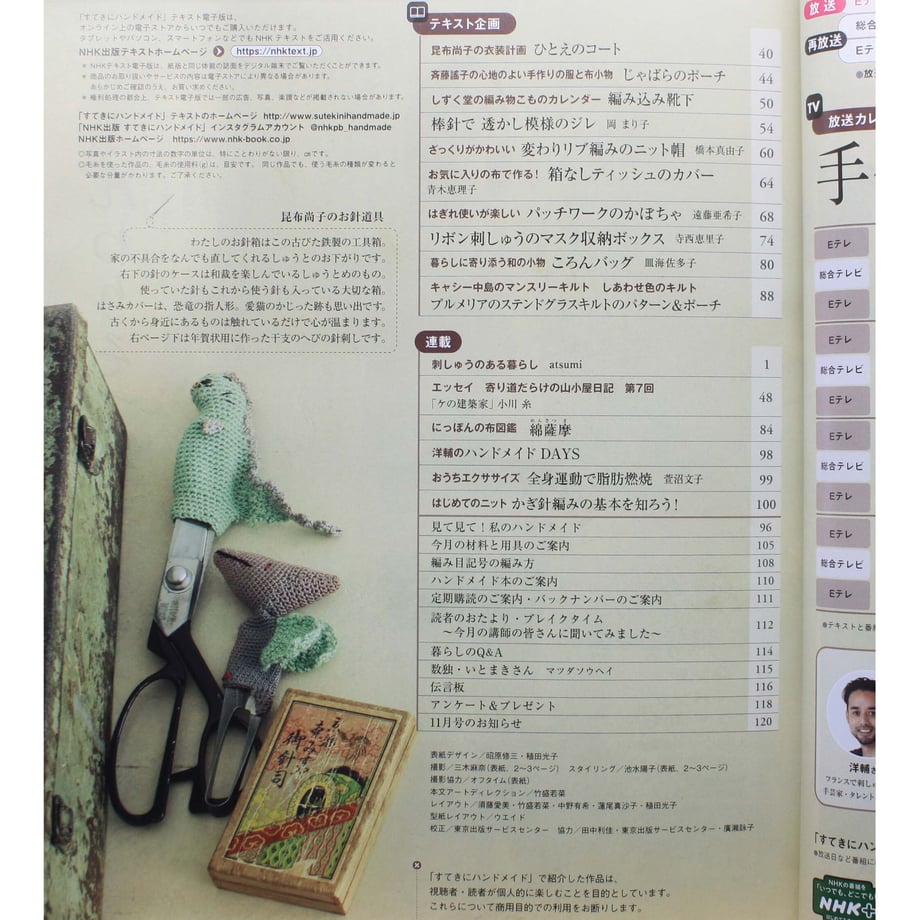 「すてきにハンドメイド」テキスト電子版は、
オンライン上の電子ストアからいつでもご購入いただけます。
タブレットやパソコン、スマートフォンなどでもNHKテキストをご活用ください。
NHK出版テキストホームページ https://nhktext.jp
＊NHKテキスト電子版は、紙版と同じ体裁の誌面をデジタル端末でご覧いただくことができます。
＊商品のお取り扱いやサービスの内容は電子ストアにより異なる場合があります。
あらかじめご確認のうえ、お買い求めください。
＊権利処理の都合上、テキスト電子版では一部の広告、写真、楽譜などが掲載されない場合があります。
「すてきにハンドメイド」テキストのホームページ http://www.sutekinihandmade.jp
「NHK出版 すてきにハンドメイド」インスタグラムアカウント @nhkpb_handmade
NHK出版ホームページ https://www.nhk-book.co.jp
◎写真やイラスト内の寸法の数字の単位は、特にことわりがない限り、㎝です。
◎毛糸を使った作品の、毛糸の使用料(g)は、目安です。同じ作品でも、使う毛糸の種類が変わると
必要な分量がかわります。ご了承ください。
昆布尚子のお針道具
わたしのお針箱はこの古びた鉄製の工具箱。
家の不具合をなんでも直してくれるしゅうとのお下がりです。
右下の針のケースは和裁を楽しんでいるしゅうとめのもの。
使っていた針もこれから使う針も入っている大切な箱。
はさみカバーは、恐竜の指人形。愛猫のかじった跡も思い出です。
古くから身近にあるものは触れているだけで心が温まります。
右ページ下は年賀状用に作った干支のへびの針刺しです。
テキスト企画
昆布尚子の衣装計画 ひとえのコート 40
斉藤謠子の心地のよい手作りの服と布小物 じゃばらのポーチ 44
しずく堂の編み物こものカレンダー 編み込み靴下 50
棒針で 透かし模様のジレ 岡 まり子 54
ざっくりがかわいい 変わりリブ編みのニット帽 橋本真由子 60
お気に入りの布で作る! 箱なしティッシュのカバー 64
青木恵理子
はぎれ使いが楽しい パッチワークのかぼちゃ 遠藤亜希子 68
リボン刺しゅうのマスク収納ボックス 寺西恵里子 74
暮らしに寄り添う和の小物 ころんバッグ 皿海佐多子 80
キャシー中島のマンスリーキルト しあわせ色のキルト 88
プルメリアのステンドグラスキルトのパターン&ポーチ
連載
刺しゅうのある暮らし atsumi 1
エッセイ 寄り道だらけの山小屋日記 第7回 48
「ケの建築家」小川 糸
にっぽんの布図鑑 綿薩摩 84
洋輔のハンドメイド DAYS 98
おうちエクササイズ 全身運動で脂肪燃焼 菅沼文子 99
はじめてのニット かぎ針編みの基本を知ろう! 100
見て見て!私のハンドメイド 96
今月の材料と用具のご案内 105
編み目記号の編み方 108
ハンドメイド本のご案内 110
定期購読のご案内・バックナンバーのご案内 111
読者のおたより・ブレイクタイム 112
～今月の講師の皆さんに聞いてみました～
暮らしのQ&A 114
数独・いとまきさん マツダソウヘイ 115
伝言板 116
アンケート&プレゼント 118
11月号のお知らせ 120
表紙デザイン／昭原修三・植田光子
撮影／三木麻奈(表紙、2～3ページ) スタイリング／池水陽子(表紙、2～3ページ)
撮影協力／オフタイム(表紙)
本文アートディレクション／竹盛若菜
レイアウト／須藤愛美・竹盛若菜・中野有希・蓮尾真沙子・植田光子
型紙レイアウト／ウエイド
校正／東京出版サービスセンター 協力／田中利佳・東京出版サービスセンター・廣瀨詠子
「すてきにハンドメイド」で紹介した作品は、
視聴者・読者が個人的に楽しむことを目的としています。
これらについて商用目的での利用をお断りします。
放送
再放送
総合
Eテ
TV
放送カレ
手
Eテレ
総合テレビ
Eテレ
Eテレ
総合テレビ
Eテレ
Eテレ
総合テレビ
Eテレ
Eテレ
総合テレビ
Eテレ
※テキストと番
洋輔さ
フランスで刺しゅ
手芸家・タレント
「すてきにハン
※放送日など番組に
NHKの番組を
「いつでも、どこでも
NHK+